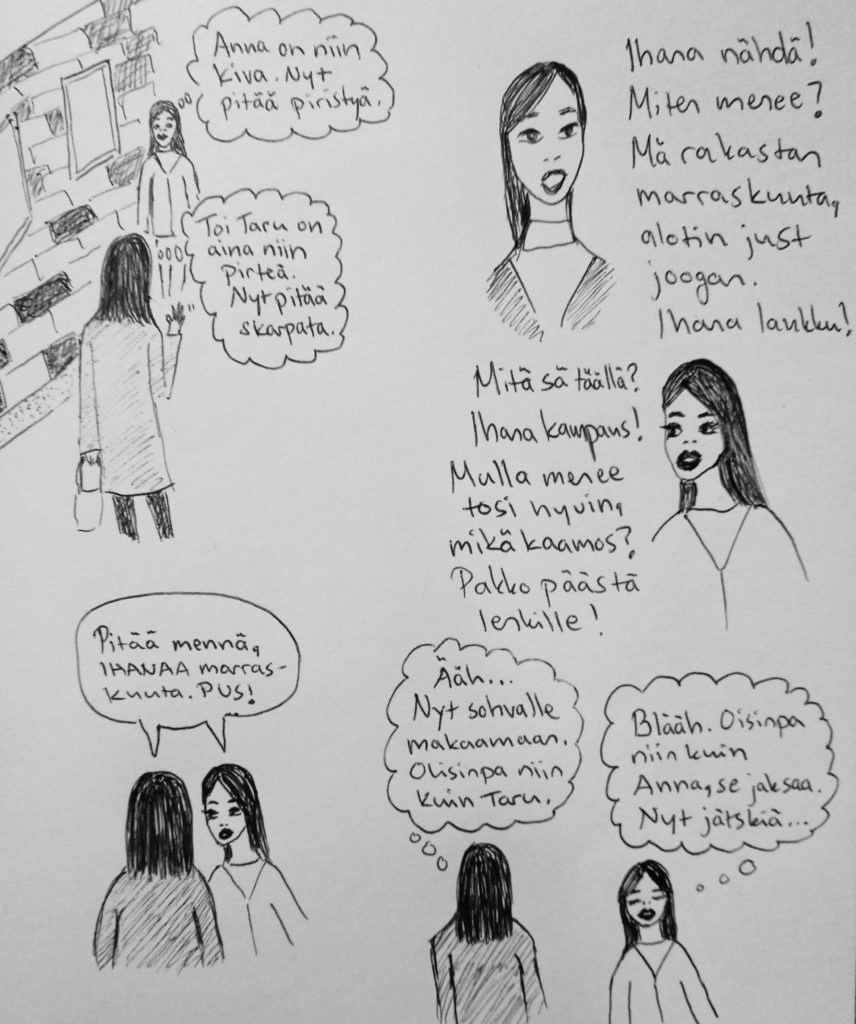 Anna on niin
kiva. Nyt
pitää piristyä.
Toi Taru on
aina niin
pirteä.
Nyt pitää
skarpata.
Ihana nähdä!
Miten menee?
Mä rakastan
marraskuuta,
alotin just
joogan.
Ihana laukku!
Mitä sä täällä?
Ihana kampaus!
Mulla menee
tosi hyvin,
mikä kaamos?
Pakko päästä
lenkille!
Pitää mennä,
IHANAA marras-
kuuta. PUS!
Ääh...
Nyt sohvalle
makaamaan.
Olisinpa niin
kuin Taru.
Blääh. Oisinpa
niin kuin
Anna, se jaksaa.
Nyt jätskiä...